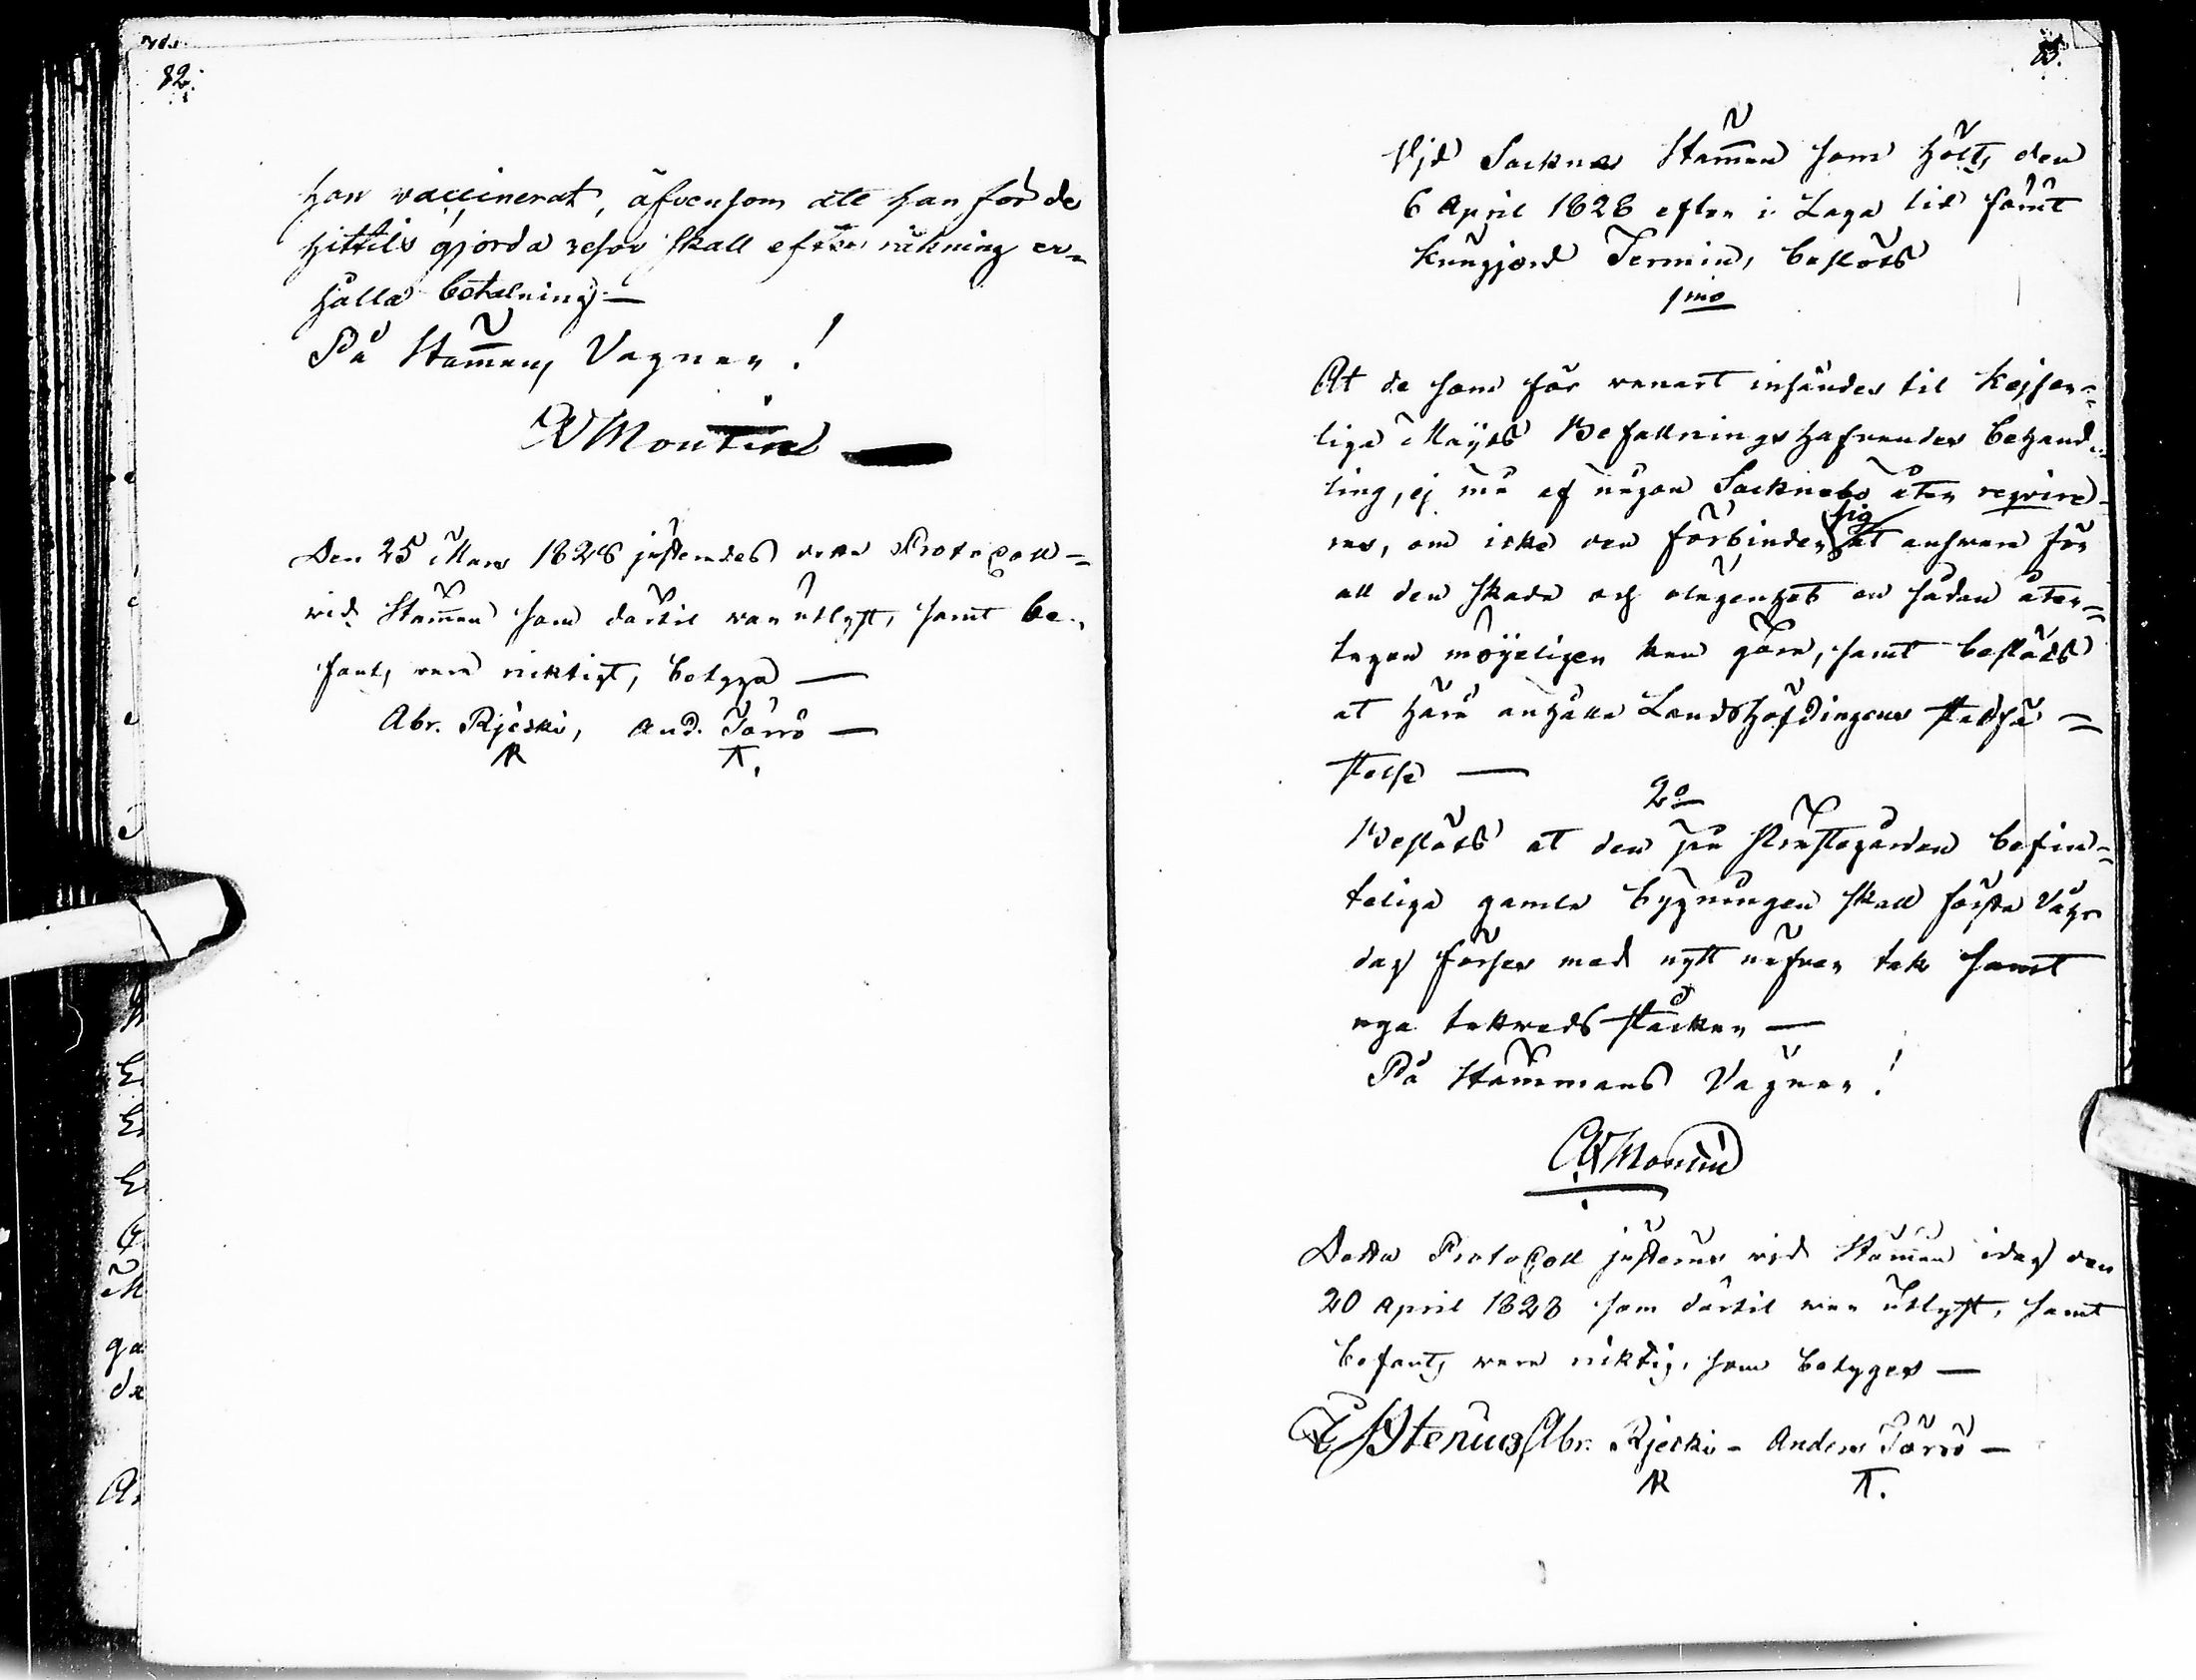 82.
han vaccinerat, äfvensom att han för de
hittils gjorda resor skall efter räkning er=
hålla betalning —
På Stämmans Vägnar!
Montin
Den 25 Mars 1828 justerades detta Protocoll =
vid Stämman som därtil var utlyst, samt be-
fants vara riktigt, betyga —
Abr. Rjeski, And. Törrö —
AR T.
83.
Vjd Sockne Stämman som hölts den
6 April 1828 efter i Laga tid samt
kungjord Termin, beslöts
1mo
At de som för vanart insändes til Kejser=
liga Maijts Befallningshafvandes behand=
ling, ej må af någon Socknebo åter reqvire-
ras, om icke den förbinder sig at answara för
all den skada och olägenhet en sådan åter=
tagen möjeligen kan göra, samt beslöts
at härå anhålla Landshöfdingens stadfä=
stelse —
2o
Beslöts at den på Prästegården befin=
teliga gamla bygningen skall första Våhr
dag förses med nytt näfver tak samt
nya takveds stäcker —
På Stämmans Vägnar!
Montin
Detta Protocoll justeras vid Stämman idag den
20 April 1828 som därtil var utlyst, samt
befants vara riktig, som betyges —
Stenius Abr. Rjecki - Anders Törrö —
AR T.